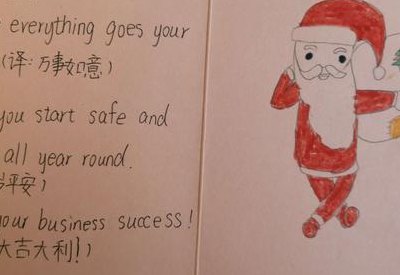 everything goes your
(译:万事如噫)
you start safe and
all year round.
平安)
your business success!
大吉大利!)